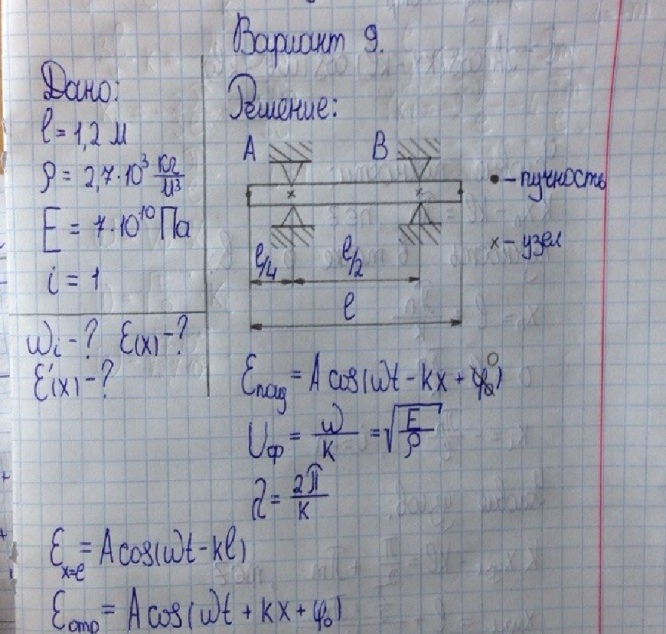 Вариант 9.
Дано:
l = 1,2 м
ρ = 2,7·10³ кг/м³
E = 7·10¹⁰ Па
i = 1
ωi - ? ξ(x) - ?
ξ'(x) - ?
Решение:
A B
• - пучность
x - узел
l/4 l/2
l
ξпад = A cos(ωt - kx + φ₀) 0
Uф = ω/k = √(E/ρ)
λ = 2π/k
ξx=l = A cos(ωt - kl)
ξотр = A cos(ωt + kx + φ₀)